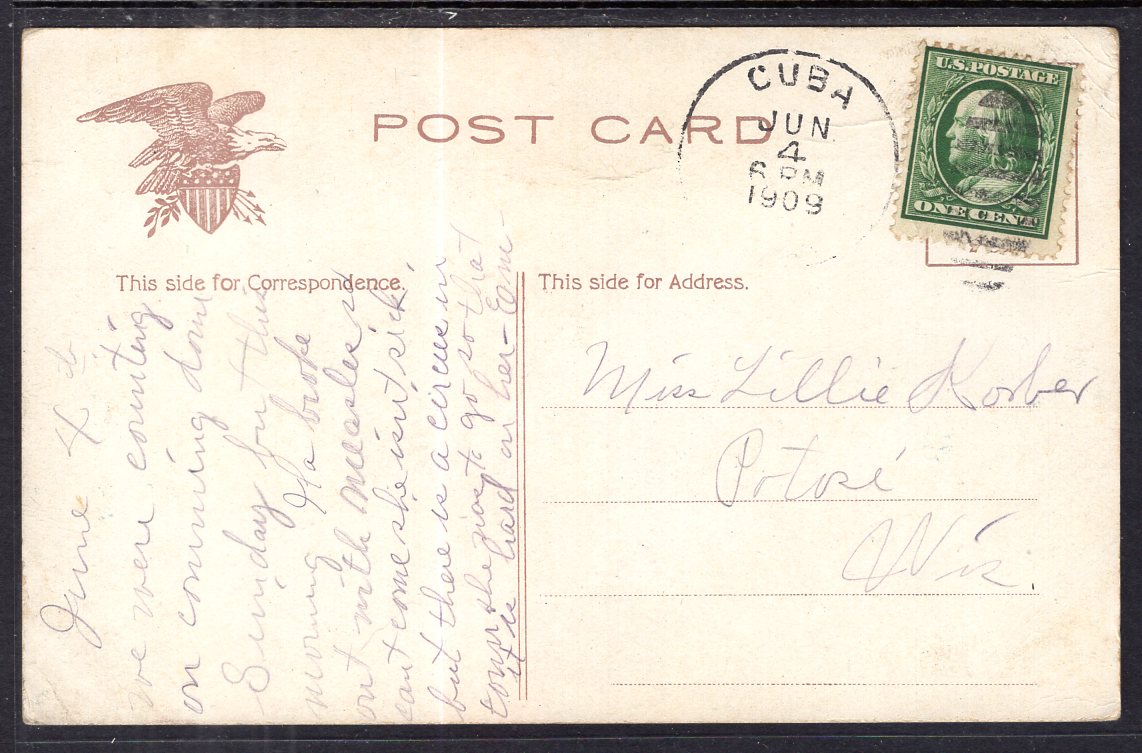 POST CARD
CUBA
JUN
4
6 PM
1909
U.S. POSTAGE
ONE CENT
This side for Correspondence.
This side for Address.
June 4
we were counting
on comming down
Sunday but this
morning Ila broke
out with measles so
cant come she isn't sick
but there is a circus in
town she was to go so that
it is hard on her—
Miss Lillie Korber
Potosi
Wis